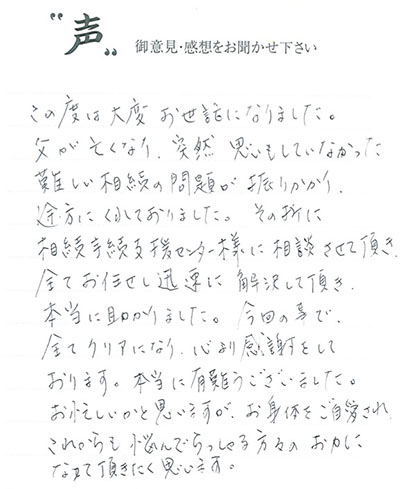 "声" 御意見・感想をお聞かせ下さい
この度は大変お世話になりました。
父が亡くなり、突然 思いもしていなかった
難しい相続の問題が振りかかり、
途方にくれておりました。その折に
相続手続支援センター様に相談させて頂き、
全てお任せし迅速に解決して頂き、
本当に助かりました。今回の事で、
全てクリアになり、心より感謝をして
おります。本当に有難うございました。
お忙しいかと思いますが、お身体をご自愛され、
これからも悩んでらっしゃる方々のお力に
なって頂きたく思います。